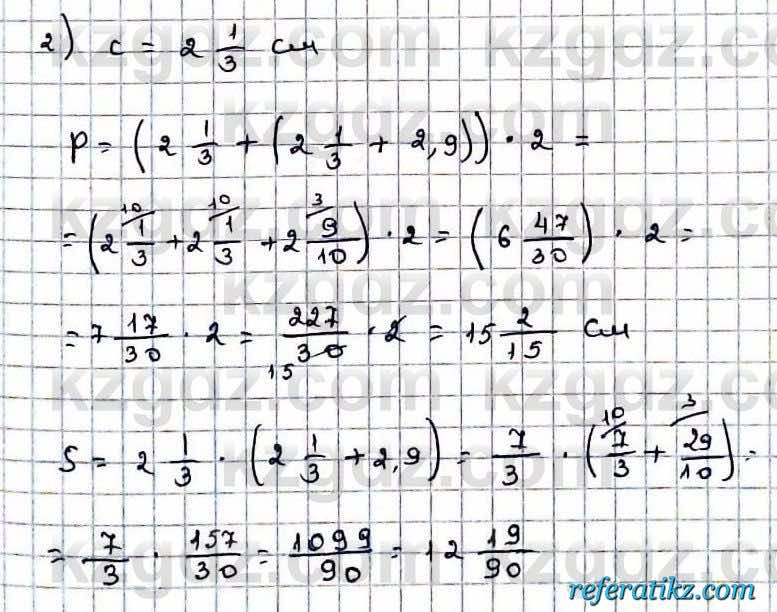 2) c = 2 1/3 см
P = (2 1/3 + (2 1/3 + 2,9)) · 2 =
= (2 1/3 + 2 1/3 + 2 9/10) · 2 = (6 47/30) · 2 =
= 7 17/30 · 2 = 227/30 · 2 = 15 2/15 см
S = 2 1/3 · (2 1/3 + 2,9) = 7/3 · (7/3 + 29/10) =
= 7/3 · 157/30 = 1099/90 = 12 19/90
kzgdz.com
referatikz.com